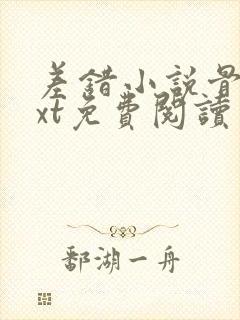 差錯小説骨
xt免費閱讀
鄱湖一舟